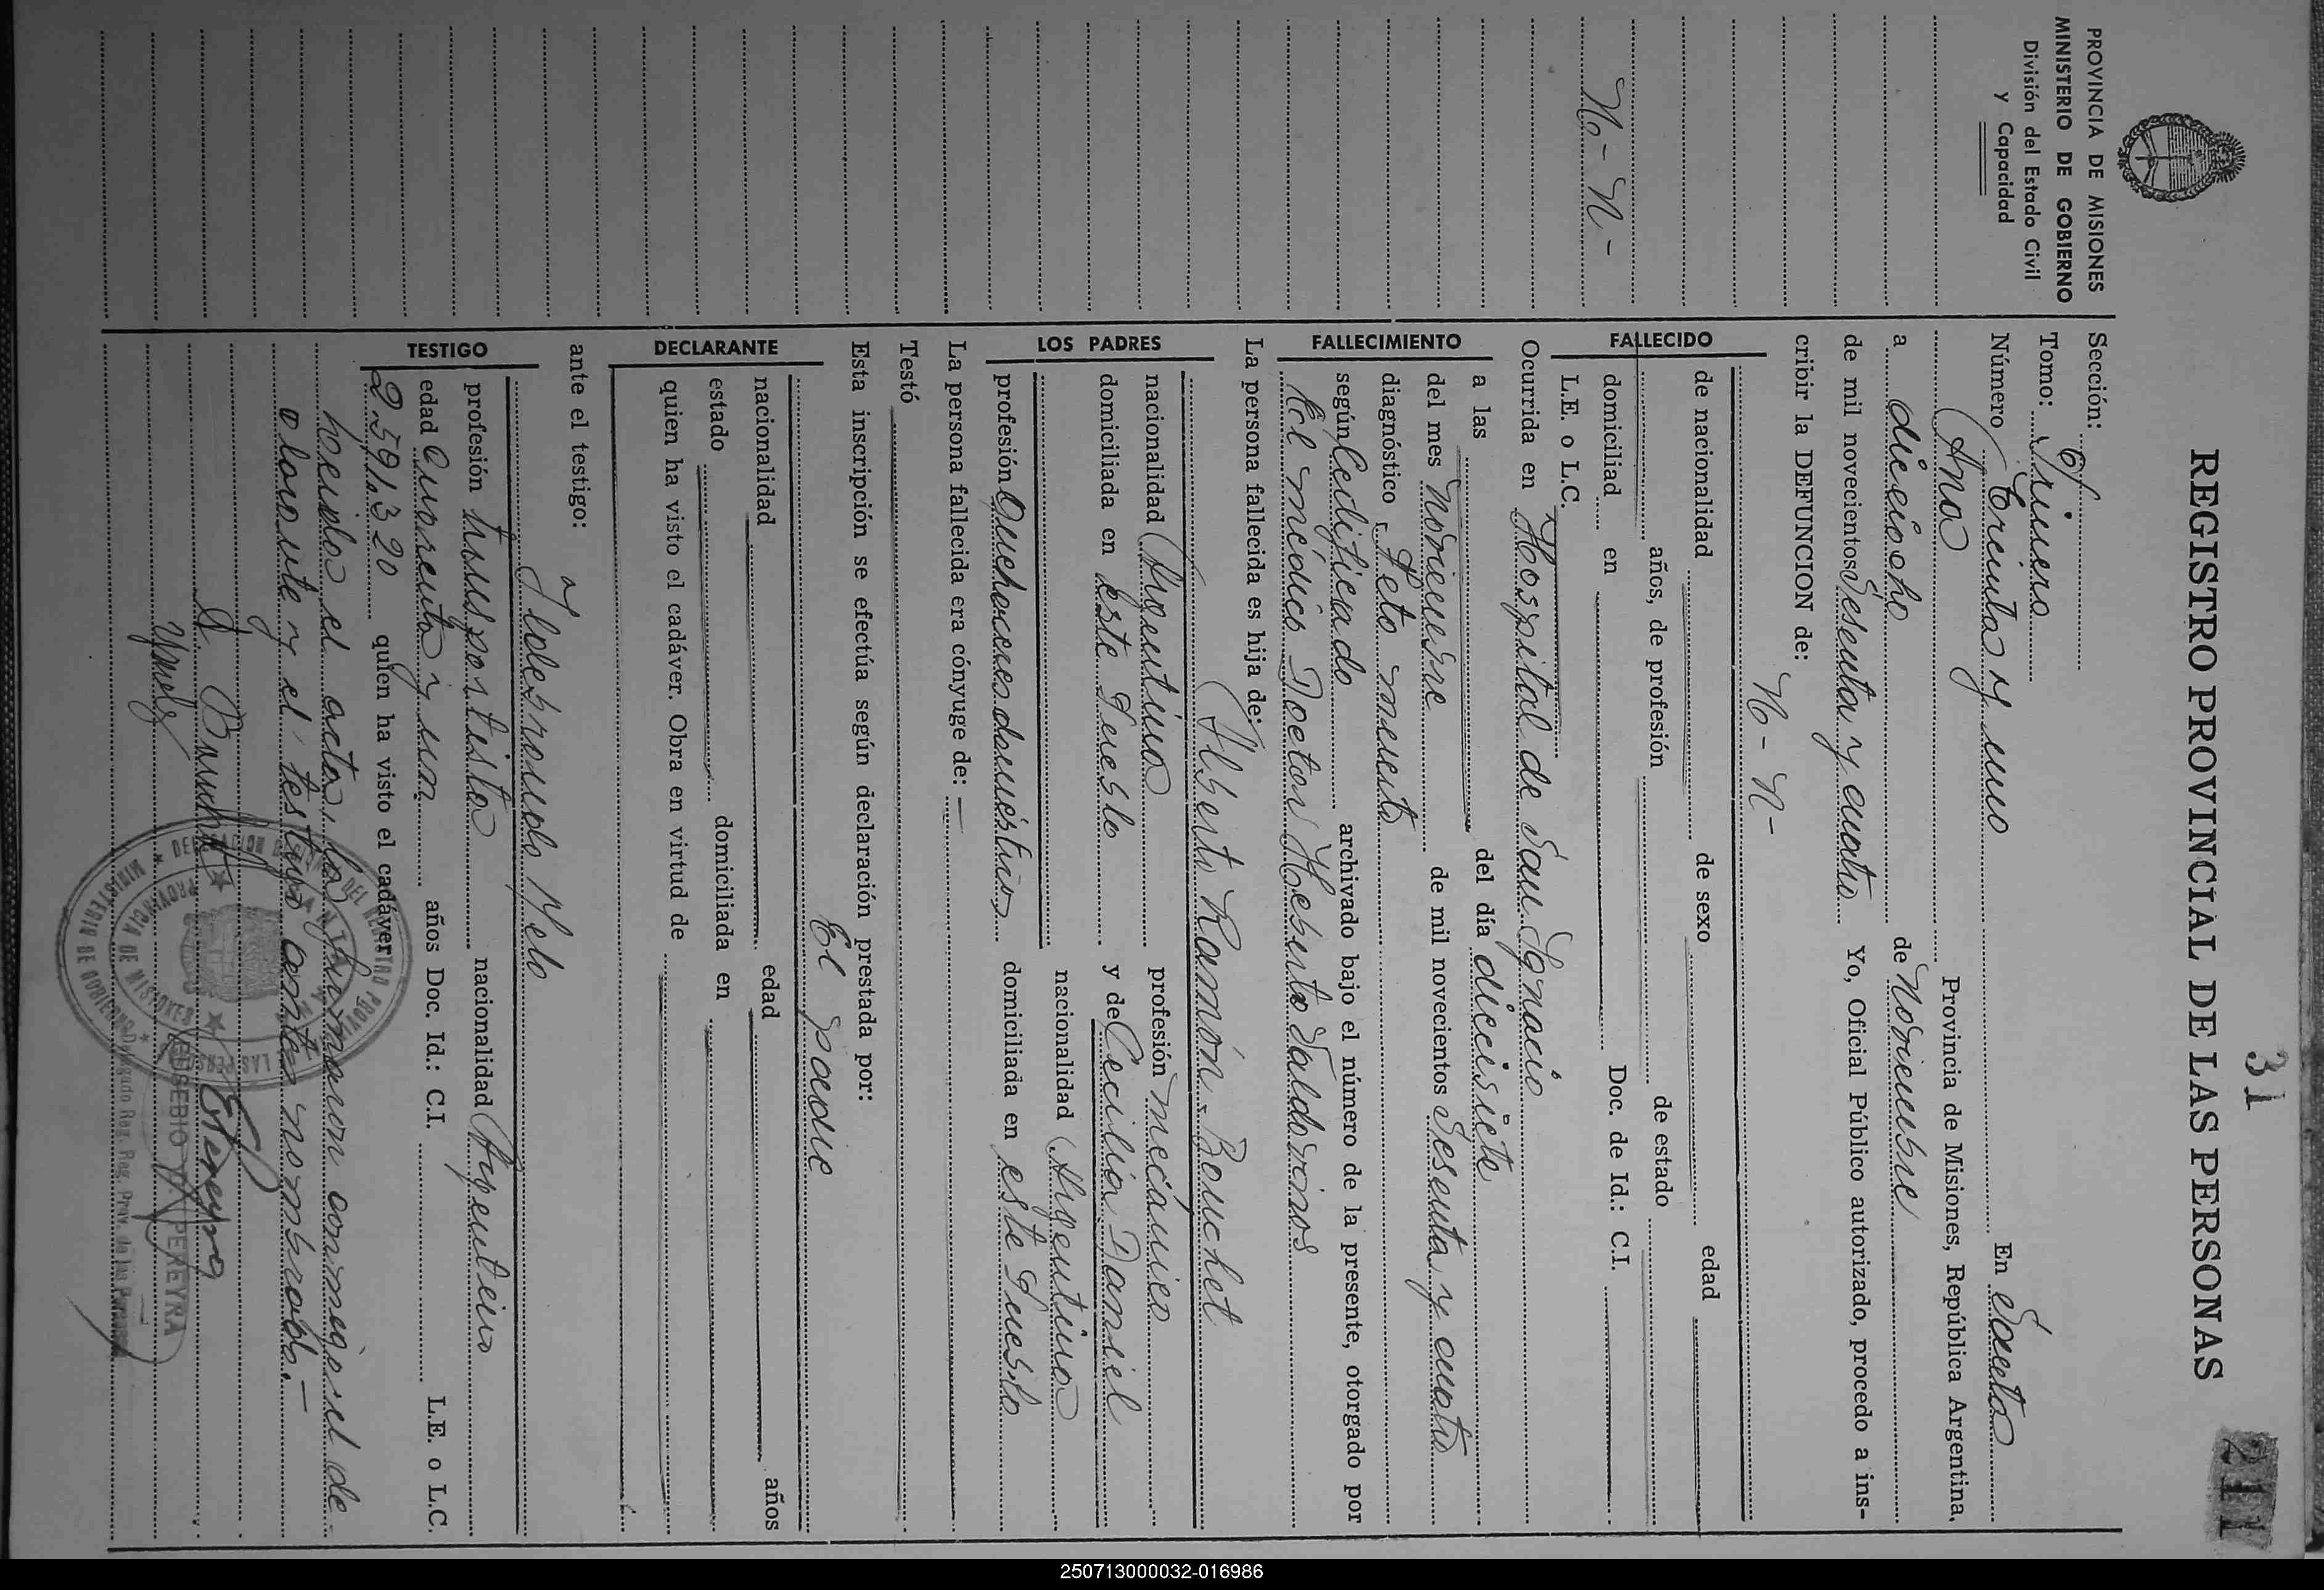 31
211
REGISTRO PROVINCIAL DE LAS PERSONAS
PROVINCIA DE MISIONES
MINISTERIO DE GOBIERNO
División del Estado Civil
y Capacidad
N.-N-
Sección: 6ª
Tomo: Primero
Número Treinta y uno En Santa
Ana Provincia de Misiones, República Argentina,
a dieciocho de noviembre
de mil novecientos sesenta y cuatro Yo, Oficial Público autorizado, procedo a ins-
cribir la DEFUNCION de: N-N-
FALLECIDO
de nacionalidad de sexo edad
años, de profesión de estado
domiciliad en Doc. de Id.: C.I.
L.E. o L.C.
FALLECIMIENTO
Ocurrida en Hospital de San Ignacio
a las del día diecisiete
del mes noviembre de mil novecientos sesenta y cuatro
diagnóstico Feto muerto
según Certificado archivado bajo el número de la presente, otorgado por
el médico Doctor Heberto Valdovinos
La persona fallecida es hija de:
LOS PADRES
Alberto Ramón Bouchet
nacionalidad Argentina profesión mecánico
domiciliada en este Pueblo y de Cecilia Daniel
nacionalidad Argentina
profesión Quehaceres domésticos domiciliada en este Pueblo
La persona fallecida era cónyuge de: —
Testó
Esta inscripción se efectúa según declaración prestada por:
DECLARANTE
El padre
nacionalidad edad años
estado domiciliada en
quien ha visto el cadáver. Obra en virtud de
ante el testigo:
TESTIGO
Ildebrando Melo
profesión transportista nacionalidad Argentino
edad Cuarenta y un años Doc. Id.: C.I. L.E. o L.C.
2.591.320 quien ha visto el cadáver
Leido el acta, la firmaron conmigo el de-
clarante y el testigo antes nombrado.-
A. Bouchet
EUSEBIO PEREYRA
Delegado Reg. Prov. de las Personas
MINISTERIO DE GOBIERNO
PROVINCIA DE MISIONES
250713000032-016986